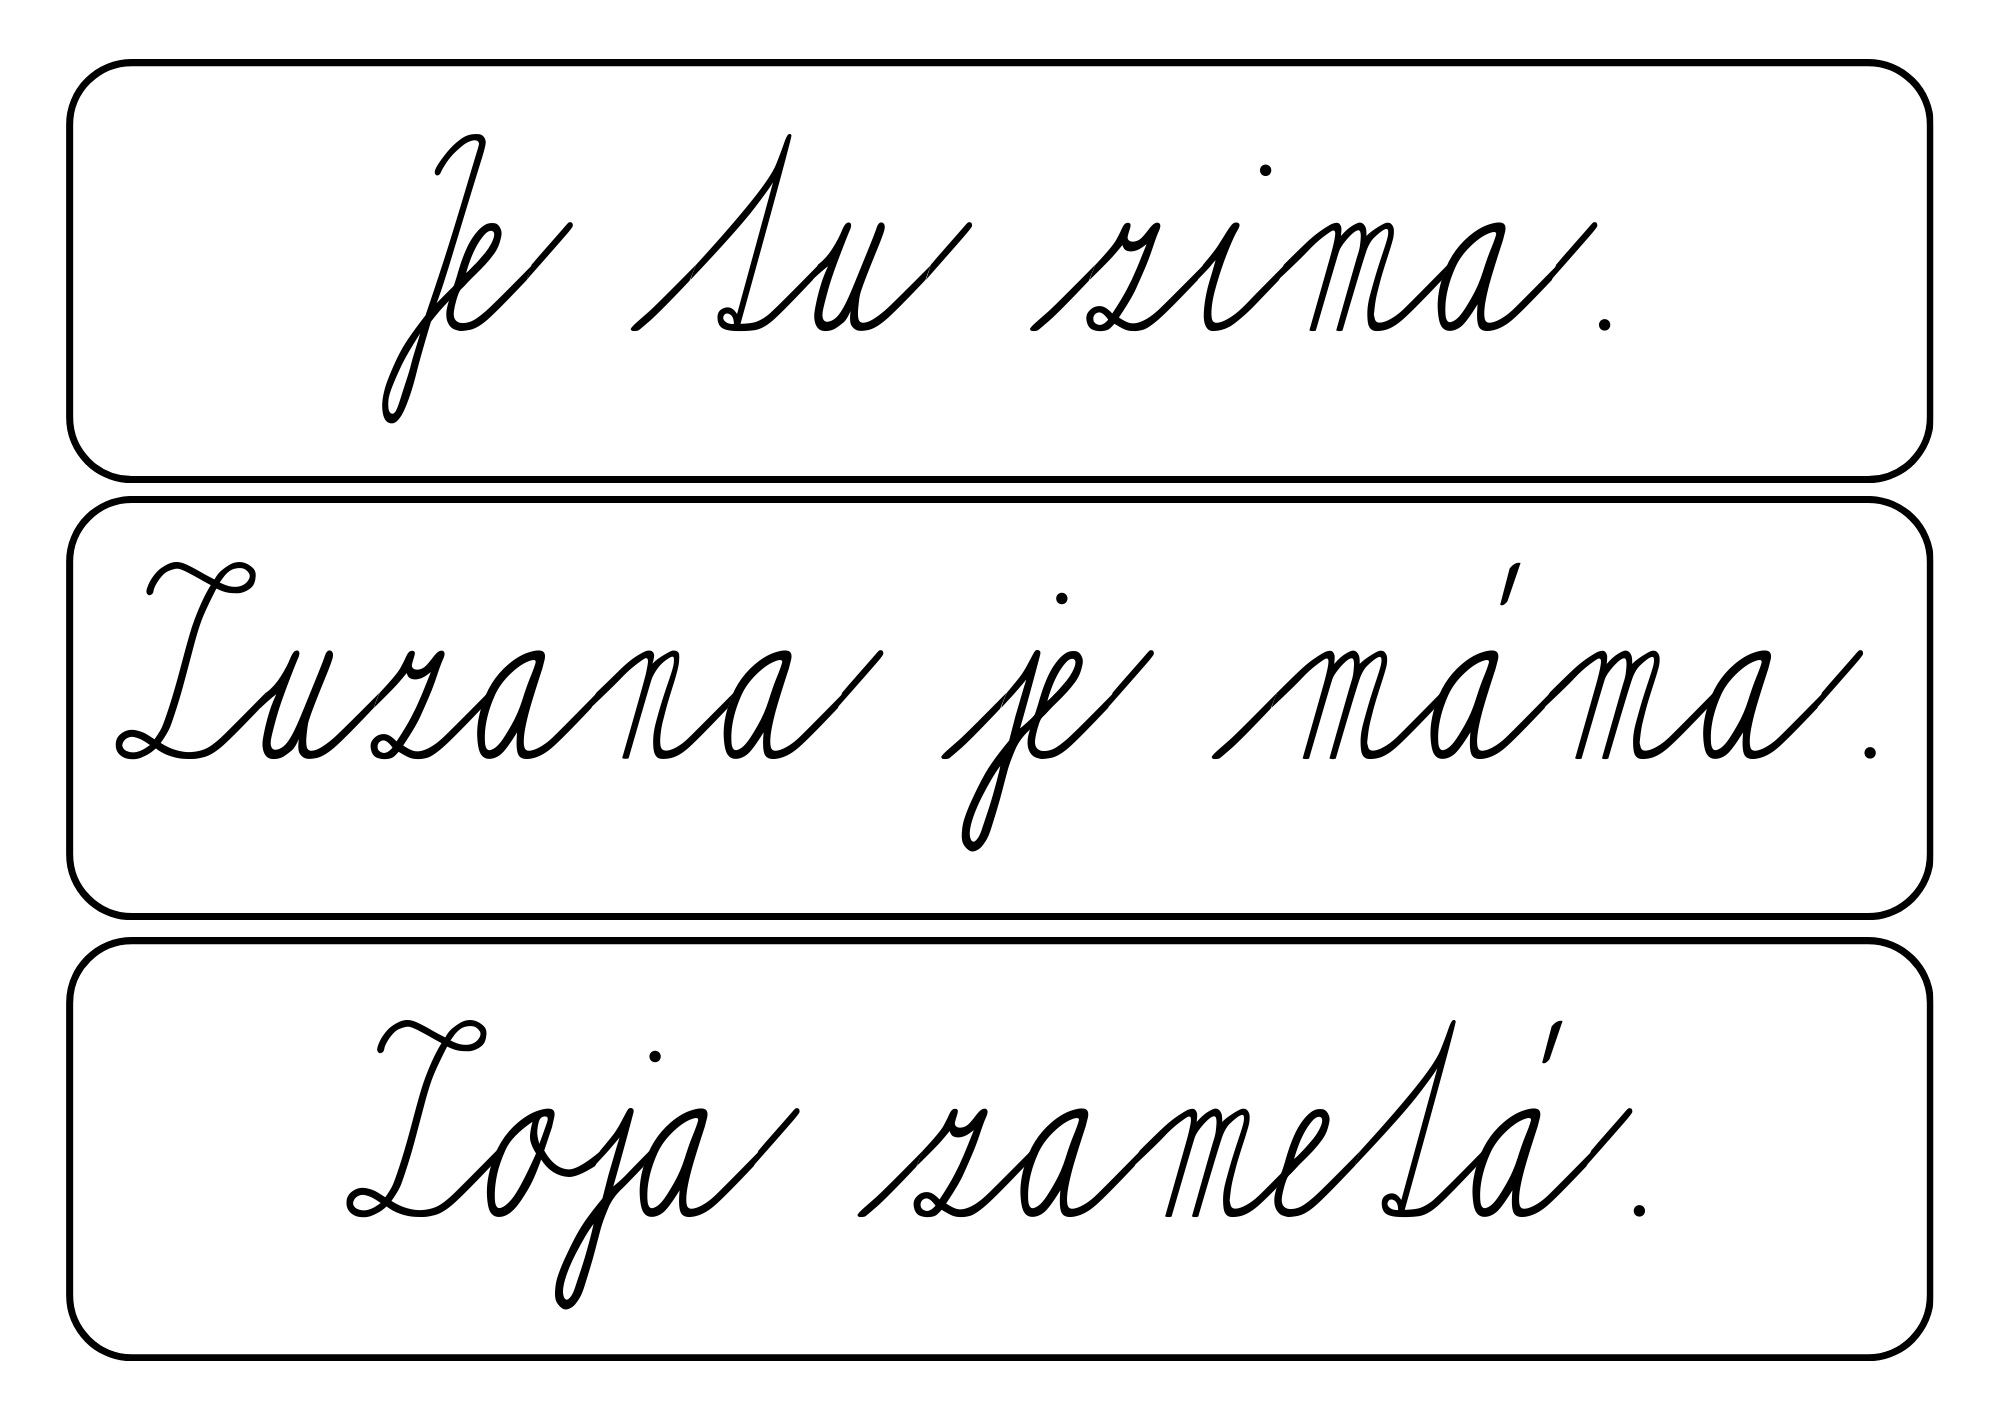 Je tu zima.
Zuzana je máma.
Zoja zametá.